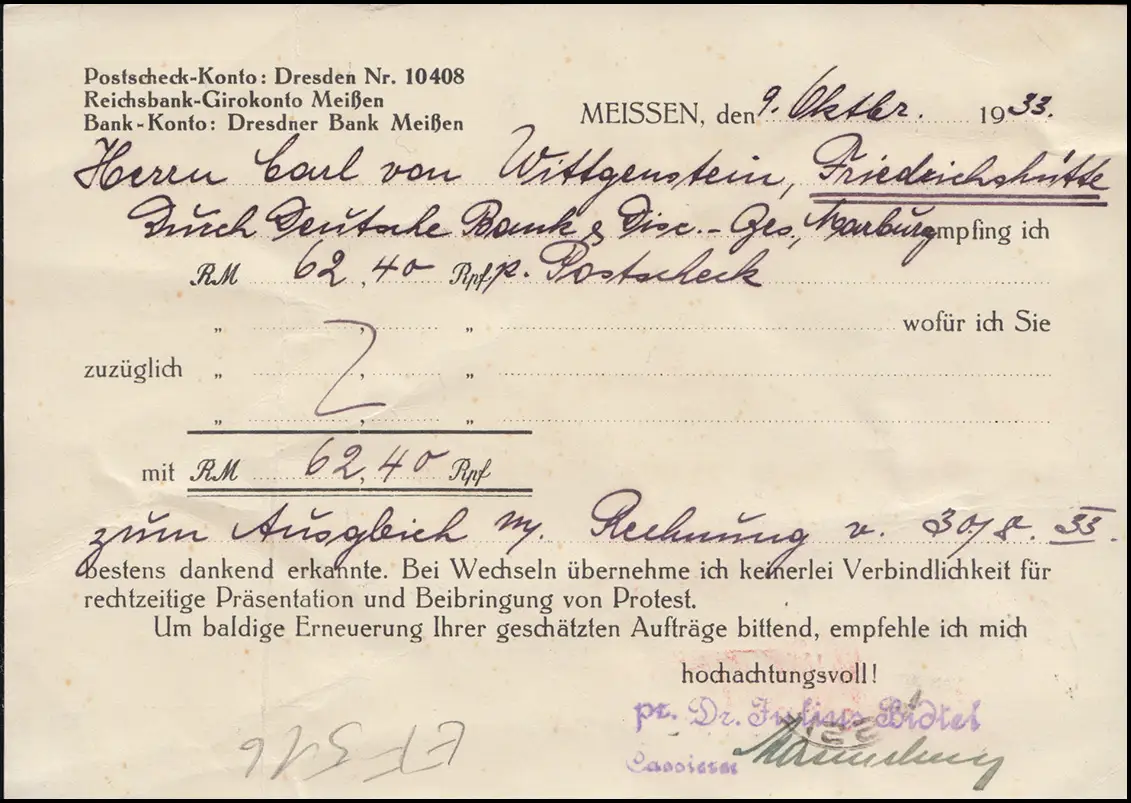 Postscheck-Konto: Dresden Nr. 10408
Reichsbank-Girokonto Meißen
Bank-Konto: Dresdner Bank Meißen
MEISSEN, den 9. Oktbr. 1933.
Herrn Carl von Wittgenstein, Friedrichshütte
Durch Deutsche Bank & Disc.-Ges., Marburg empfing ich
RM 62,40 Rpf p. Postscheck
„ , „ wofür ich Sie
zuzüglich „ , „
„ , „
mit RM 62,40 Rpf
zum Ausgleich m/. Rechnung v. 30/8. 33.
bestens dankend erkannte. Bei Wechseln übernehme ich keinerlei Verbindlichkeit für
rechtzeitige Präsentation und Beibringung von Protest.
Um baldige Erneuerung Ihrer geschätzten Aufträge bittend, empfehle ich mich
hochachtungsvoll!
pr. Dr. Julius Bidtel
Cassierer
EF 516